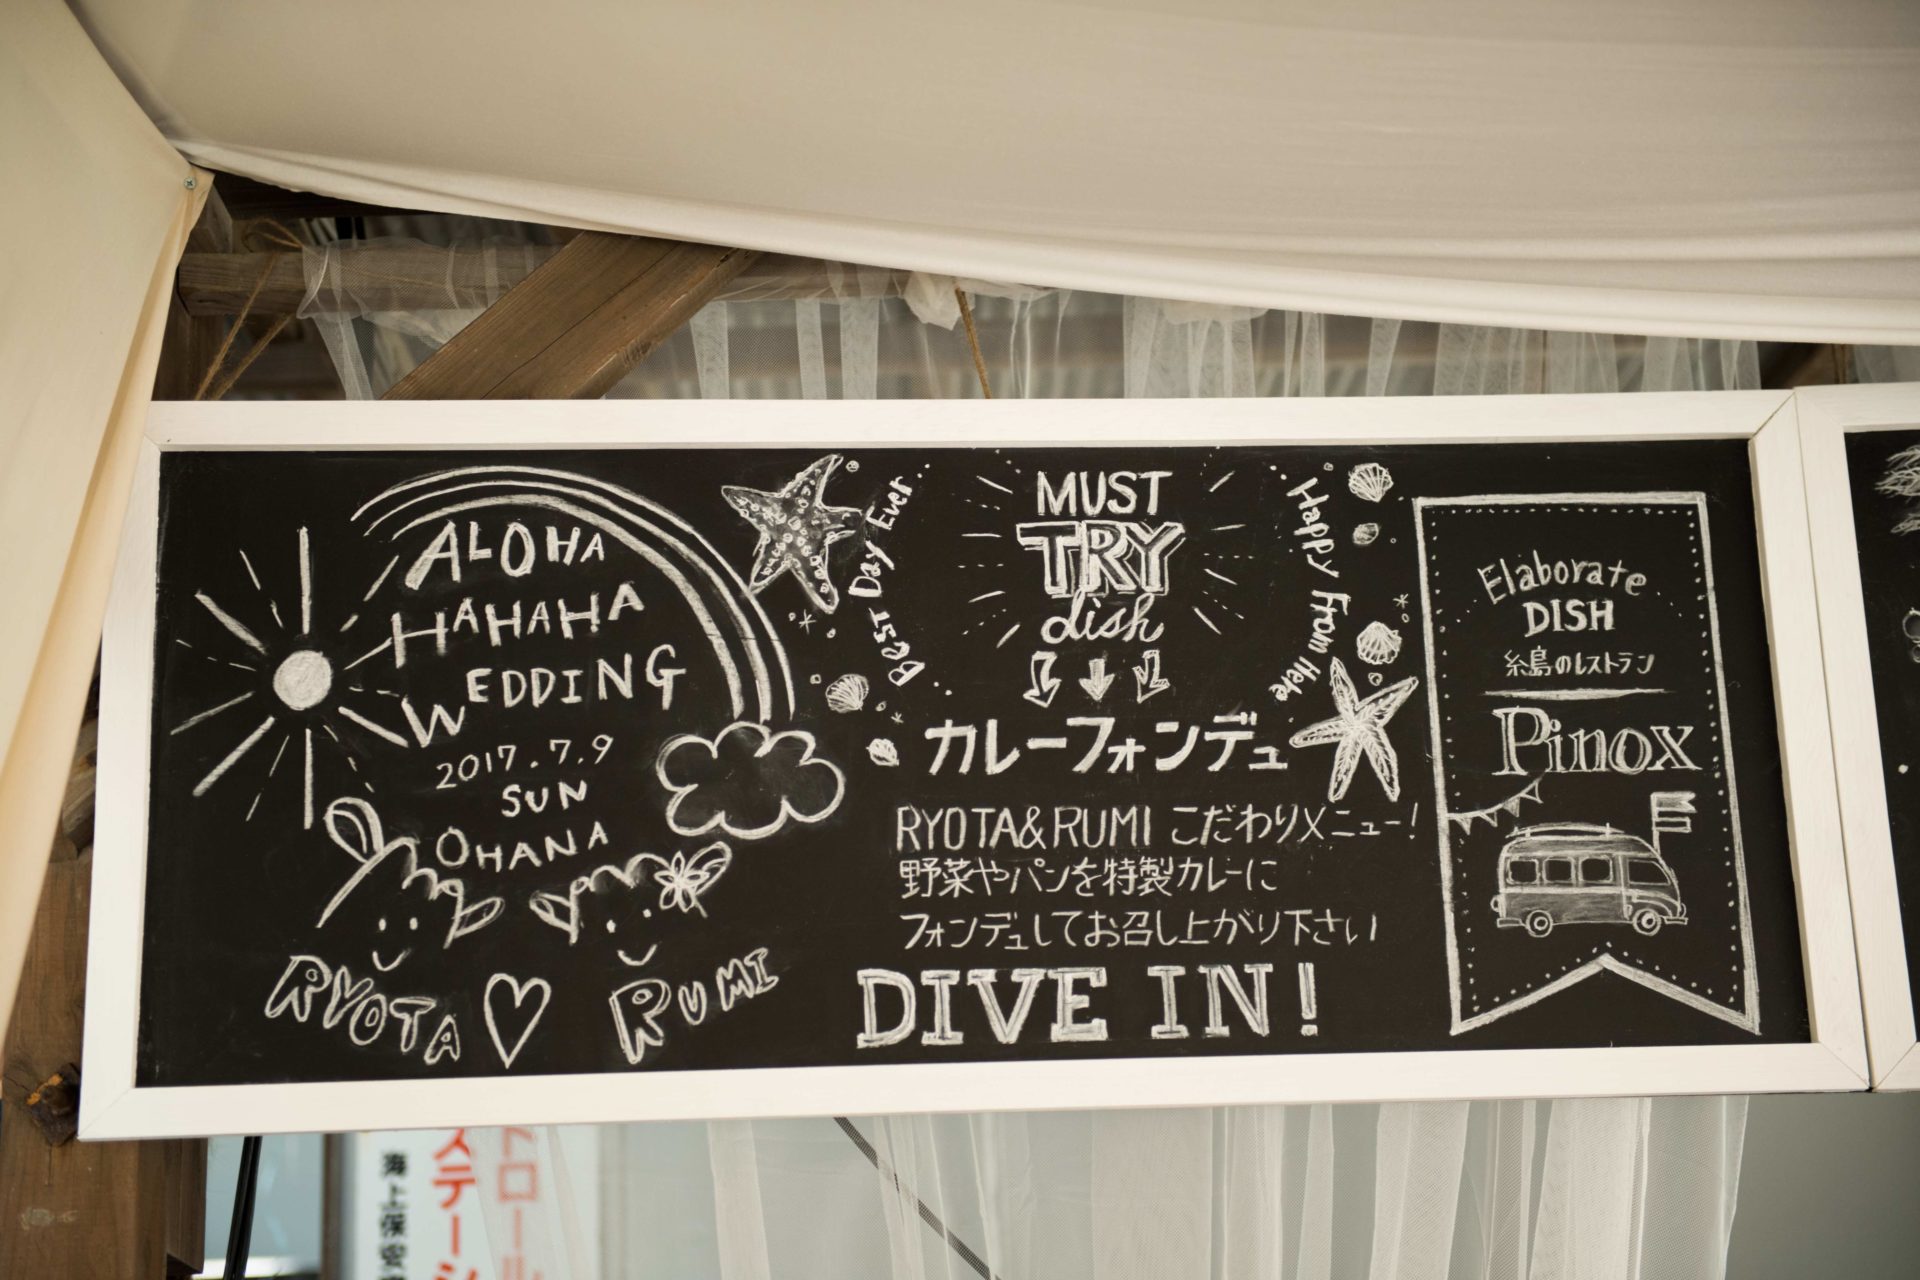 ALOHA
HAHAHA
WEDDING
2017.7.9
SUN
OHANA
RYOTA ♡ RUMI
Best Day Ever
MUST
TRY
dish
Happy From Here
カレーフォンデュ
RYOTA&RUMI こだわりメニュー!
野菜やパンを特製カレーに
フォンデュしてお召し上がり下さい
DIVE IN!
Elaborate
DISH
糸島のレストラン
Pinox
トロール
ステーシ
海上保安